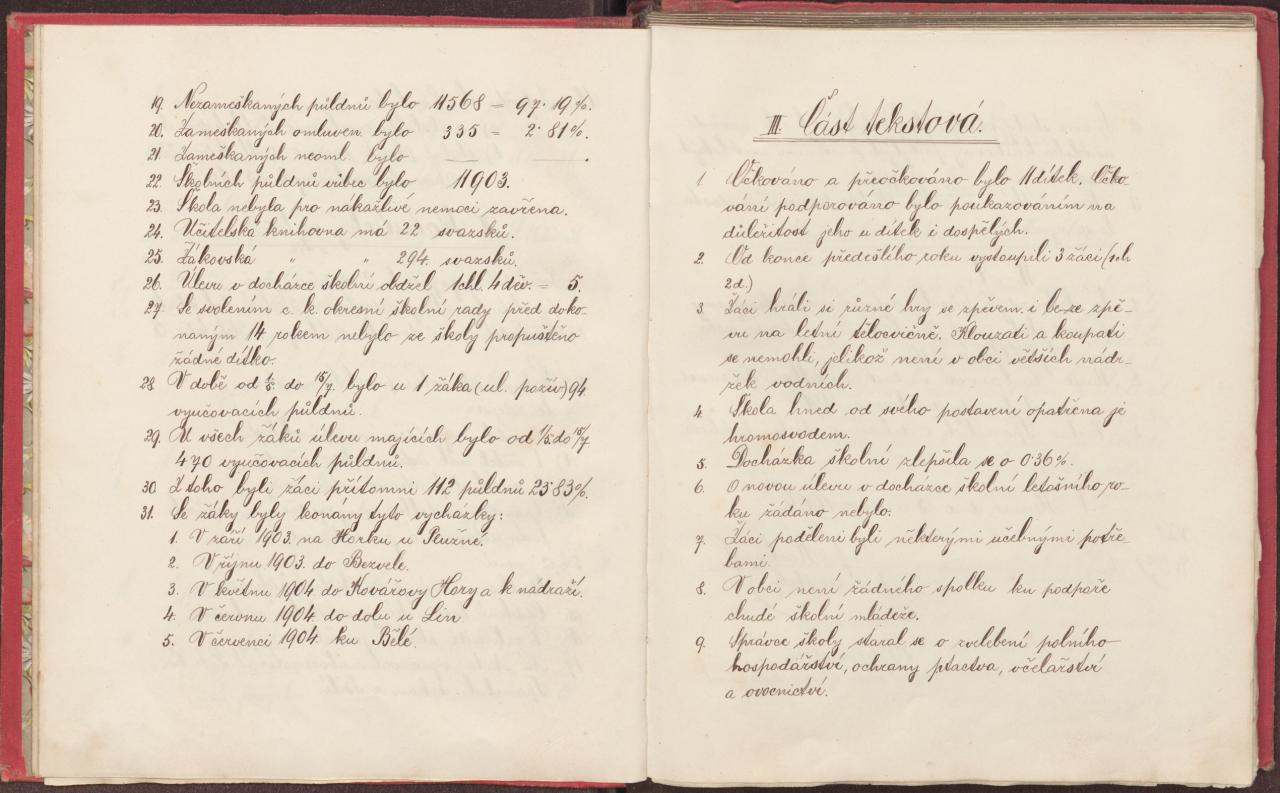 19. Nezameškaných půldnů bylo 11568 = 97·19%.
20. Zameškaných omluven. bylo 335 = 2·81%.
21. Zameškaných neoml. bylo — — .
22. Školních půldnů vůbec bylo 11903.
23. Škola nebyla pro nákažlivé nemoci zavřena.
24. Učitelská knihovna má 22 svazků.
25. Žákovská " " 294 svazků.
26. Úlevu v docházce školní obdržel 1 chl. 4 děv. = 5.
27. Se svolením c. k. okresní školní rady před doko-
naným 14 rokem nebylo ze školy propuštěno
žádné dítko.
28. V době od 1/5. do 15/7. bylo u 1 žáka (ul. požív) 94
vyučovacích půldnů.
29. U všech žáků úlevu majících bylo od 1/5. do 15/7
470 vyučovacích půldnů.
30. Z toho byli žáci přítomni 112 půldnů 23·83%.
31. Se žáky byly konany tyto vycházky:
1. V září 1903. na Horku u
2. V říjnu 1903. do Bezvele.
3. V květnu 1904 do Kovářovy Hory a k nádraží.
4. V červnu 1904. do dolu u Lín
5. V červenci 1904. ku Bělé.
III. Část tekstová.
1. Očkováno a přeočkováno bylo 11 dítek. Očko-
vání podporováno bylo poukazováním na
důležitost jeho u dítek i dospělých.
2. Od konce předešlého roku vystoupili 3 žáci (1 ch
2 d.)
3. Žáci hráli si různé hry se zpěvem i be-ze zpě-
vu na letní tělocvičně. Klouzati a koupati
se nemohli, jelikož není v obci větších nádr-
žek vodních.
4. Škola hned od svého postavení opatřena je
hromosvodem.
5. Docházka školní zlepšila se o 0·36%.
6. O novou úlevu v docházce školní letošního ro-
ku žádáno nebylo.
7. Žáci poděleni byli některými učebnými potře-
bami.
8. V obci není žádného spolku ku podpoře
chudé školní mládeže.
9. Správce školy staral se o zvelebení polního
hospodářství, ochrany ptactva, včelařství
a ovocnictví.